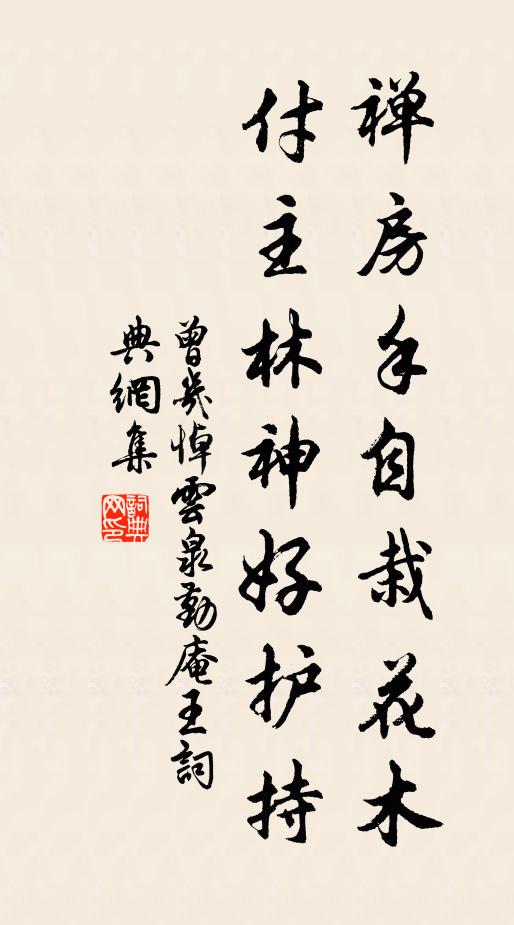 禅房手自栽花木
付主林神好护持
曾幾悼雲泉勤庵王詞
典網集
詞典网印